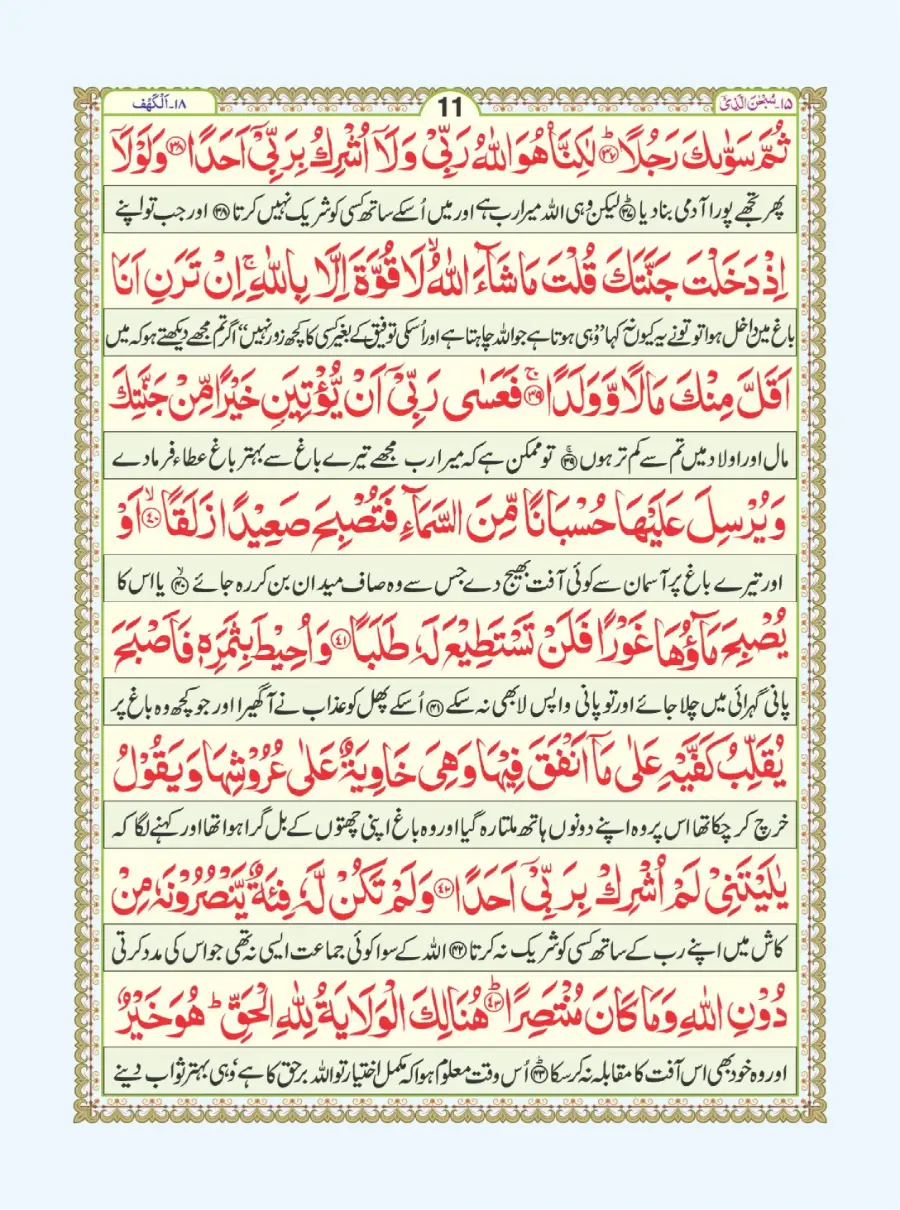 ١٥۔ سُبْحٰنَ الَّذِیْ
11
١٨۔ اَلْكَهْف
ثُمَّ سَوّٰىكَ رَجُلًا ؕ﴿۳۷﴾ لٰكِنَّا۠ هُوَ اللّٰهُ رَبِّیْ وَ لَاۤ اُشْرِكُ بِرَبِّیْۤ اَحَدًا ﴿۳۸﴾ وَ لَوْ لَاۤ
پھر تجھے پورا آدمی بنا دیا ﴿۳۷﴾ لیکن وہی اللہ میرا رب ہے اور میں اُسکے ساتھ کسی کو شریک نہیں کرتا ﴿۳۸﴾ اور جب تو اپنے
اِذْ دَخَلْتَ جَنَّتَكَ قُلْتَ مَا شَآءَ اللّٰهُ ۙ لَا قُوَّةَ اِلَّا بِاللّٰهِ ۚ اِنْ تَرَنِ اَنَا
باغ میں داخل ہوا تو تُو نے یہ کیوں نہ کہا ”وہی ہوتا ہے جو اللہ چاہتا ہے اور اُسکی توفیق کے بغیر کسی کا کچھ زور نہیں“ اگر تم مجھے دیکھتے ہو کہ میں
اَقَلَّ مِنْكَ مَالًا وَّ وَلَدًا ۚ﴿۳۹﴾ فَعَسٰی رَبِّیْۤ اَنْ یُّؤْتِیَنِ خَیْرًا مِّنْ جَنَّتِكَ
مال اور اولاد میں تم سے کم تر ہوں ﴿۳۹﴾ تو ممکن ہے کہ میرا رب مجھے تیرے باغ سے بہتر باغ عطاء فرما دے
وَ یُرْسِلَ عَلَیْهَا حُسْبَانًا مِّنَ السَّمَآءِ فَتُصْبِحَ صَعِیْدًا زَلَقًا ۙ﴿۴۰﴾ اَوْ
اور تیرے باغ پر آسمان سے کوئی آفت بھیج دے جس سے وہ صاف میدان بن کر رہ جائے ﴿۴۰﴾ یا اس کا
یُصْبِحَ مَآؤُهَا غَوْرًا فَلَنْ تَسْتَطِیْعَ لَهٗ طَلَبًا ﴿۴۱﴾ وَ اُحِیْطَ بِثَمَرِهٖ فَاَصْبَحَ
پانی گہرائی میں چلا جائے اور تو پانی واپس لا بھی نہ سکے ﴿۴۱﴾ اُسکے پھل کو عذاب نے آ گھیرا اور جو کچھ وہ باغ پر
یُقَلِّبُ كَفَّیْهِ عَلٰی مَاۤ اَنْفَقَ فِیْهَا وَ هِیَ خَاوِیَةٌ عَلٰی عُرُوْشِهَا وَ یَقُوْلُ
خرچ کر چکا تھا اس پر وہ اپنے دونوں ہاتھ ملتا رہ گیا اور وہ باغ اپنی چھتوں کے بل گرا ہوا تھا اور کہنے لگا کہ
یٰلَیْتَنِیْ لَمْ اُشْرِكْ بِرَبِّیْۤ اَحَدًا ﴿۴۲﴾ وَ لَمْ تَكُنْ لَّهٗ فِئَةٌ یَّنْصُرُوْنَهٗ مِنْ
کاش میں اپنے رب کے ساتھ کسی کو شریک نہ کرتا ﴿۴۲﴾ اللہ کے سوا کوئی جماعت ایسی نہ تھی جو اس کی مدد کرتی
دُوْنِ اللّٰهِ وَ مَا كَانَ مُنْتَصِرًا ؕ﴿۴۳﴾ هُنَالِكَ الْوَلَایَةُ لِلّٰهِ الْحَقِّ ؕ هُوَ خَیْرٌ
اور وہ خود بھی اس آفت کا مقابلہ نہ کر سکا ﴿۴۳﴾ اُس وقت معلوم ہوا کہ مکمل اختیار تو اللہ برحق کا ہے، وُہی بہتر ثواب دینے